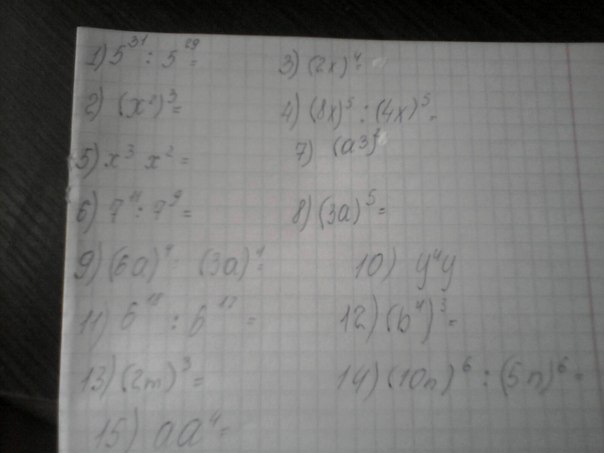 1) 5³¹ : 5²⁹ = 3) (2x)⁴ =
2) (x²)³ = 4) (8x)⁵ : (4x)⁵ =
5) x³ x² = 7) (a3)
6) 7¹¹ : 7⁹ = 8) (3a)⁵ =
9) (6a)⁴ (3a)⁴ = 10) y⁴y
11) b¹⁸ : b¹⁷ = 12) (b⁴)³ =
13) (2m)³ = 14) (10n)⁶ : (5n)⁶ =
15) aa⁴ =